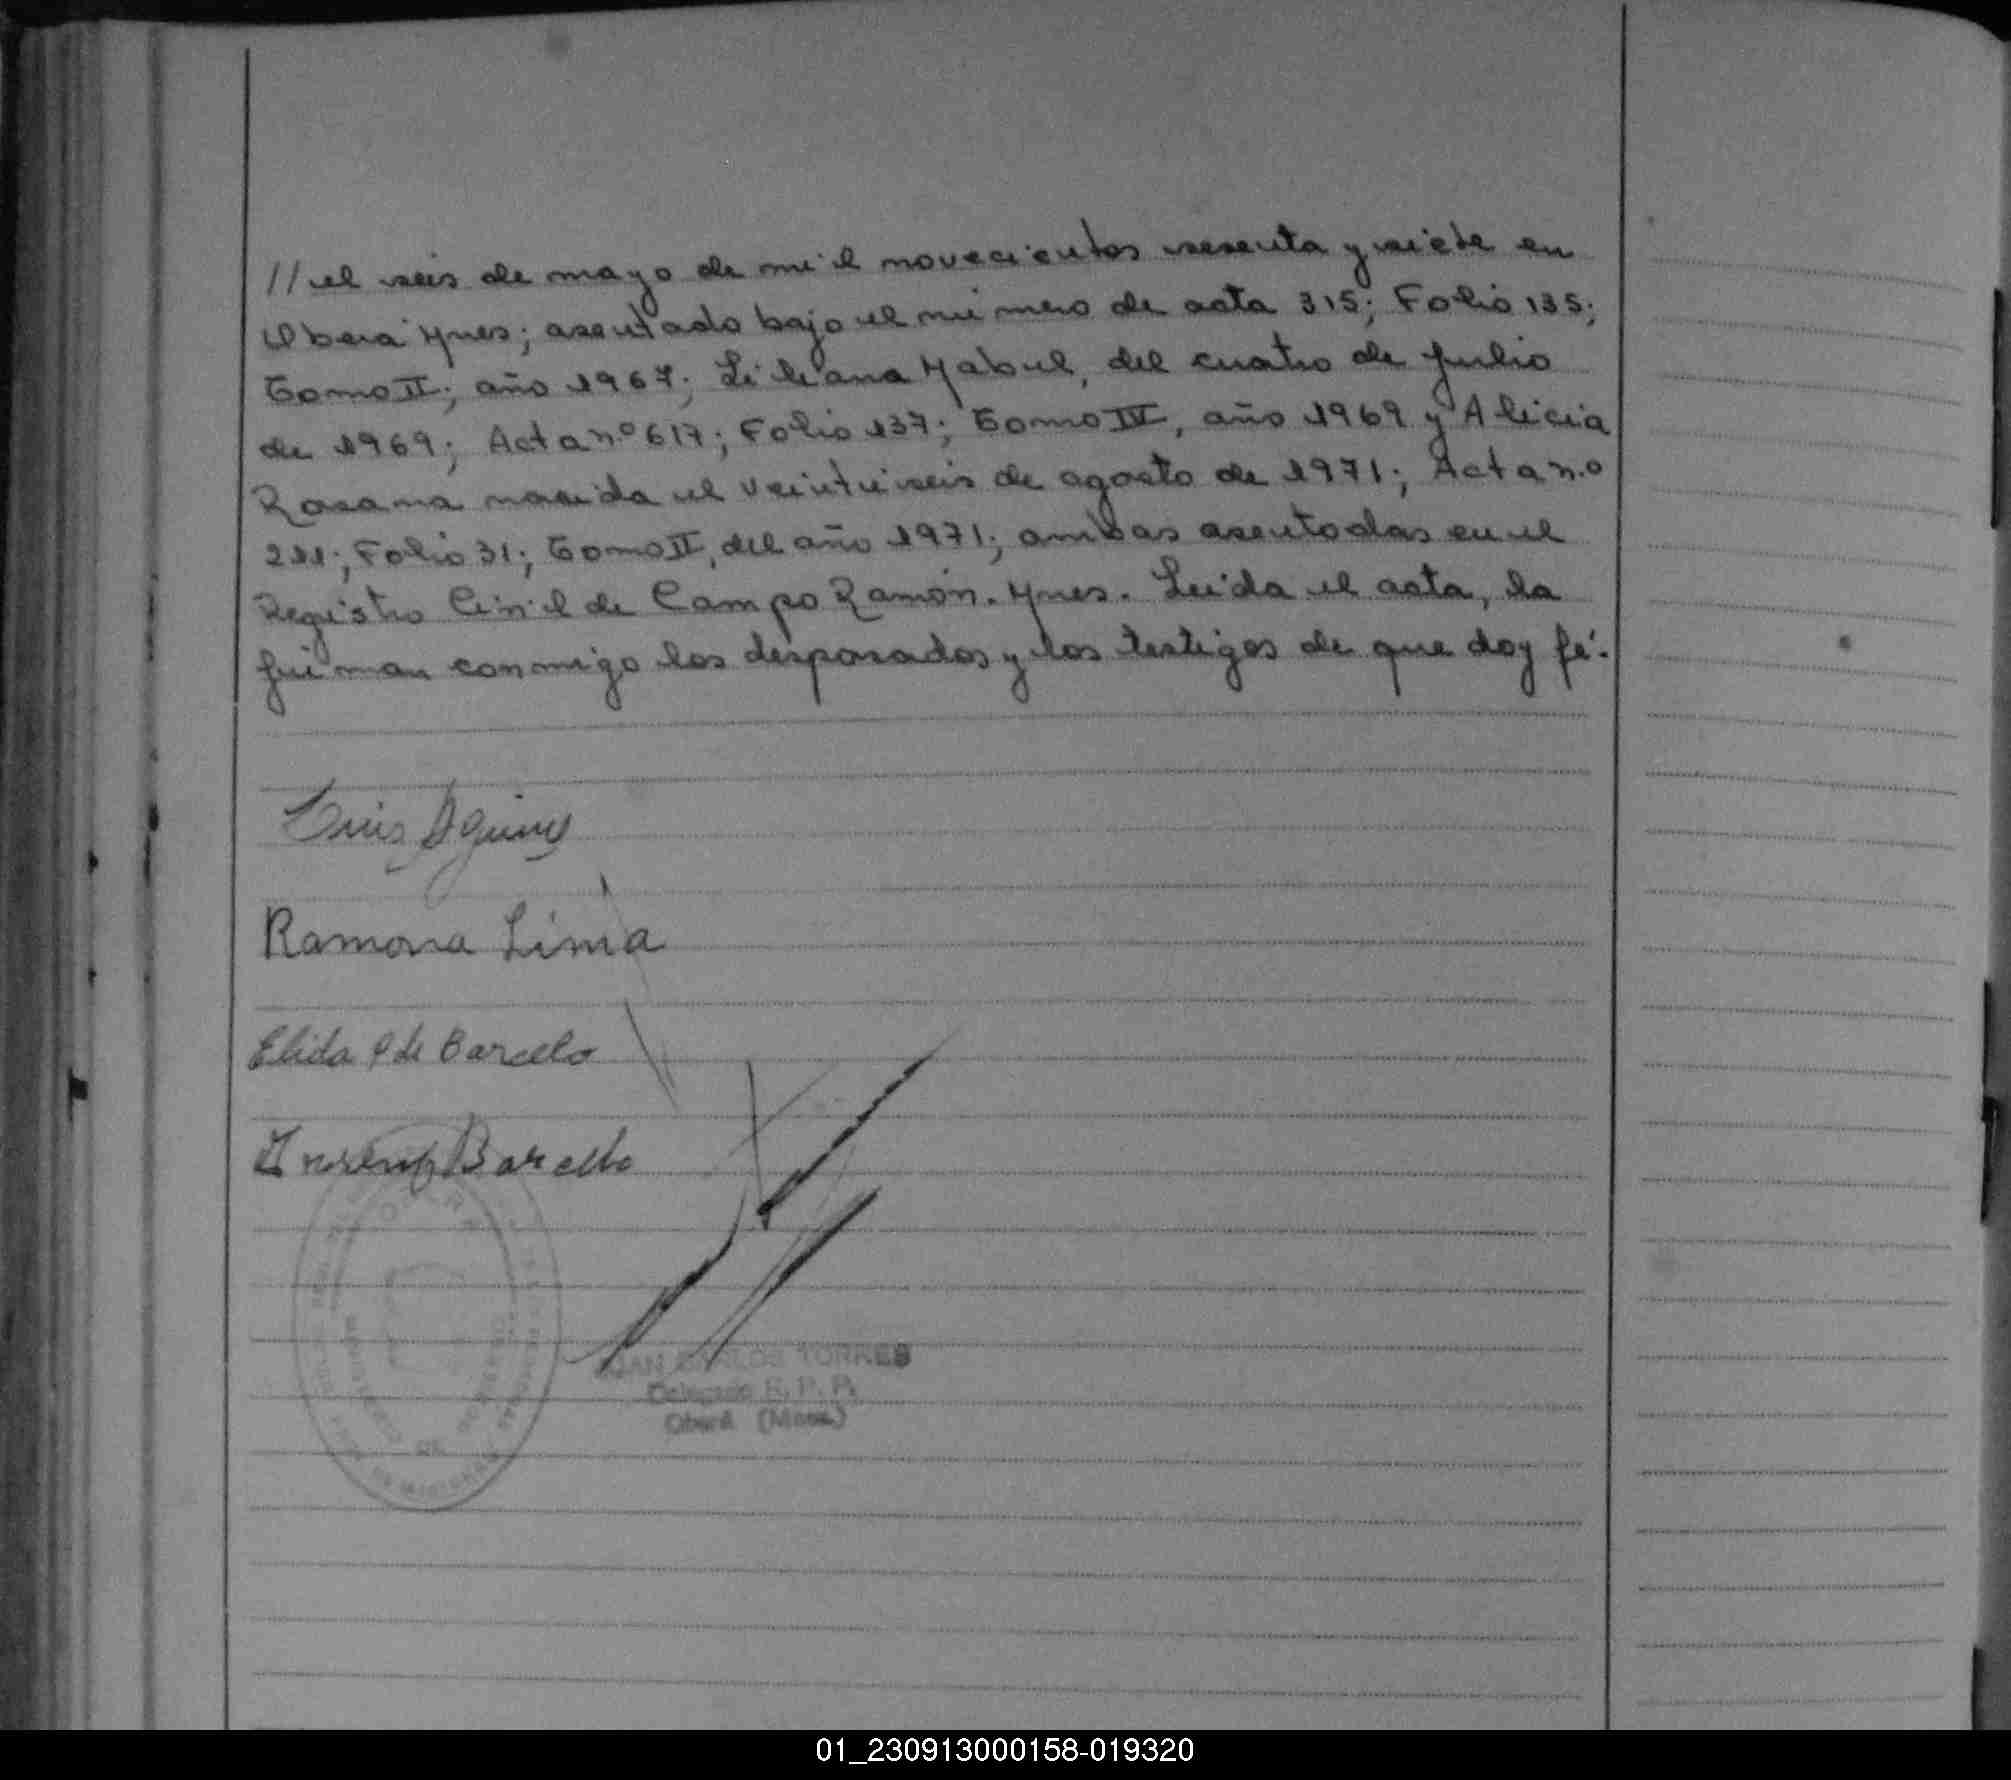 // el seis de mayo de mil novecientos sesenta y siete en
Oberá Mnes; asentado bajo el número de acta 315; Folio 135;
Tomo II; año 1967; Liliana Mabel, del cuatro de Julio
de 1969; Acta n.º 617; Folio 137; Tomo IV, año 1969 y Alicia
Rosana nacida el veintiseis de agosto de 1971; Acta n.º
211; Folio 31; Tomo II, del año 1971; ambas asentadas en el
Registro Civil de Campo Ramón. Mnes. Leída el acta, la
firman conmigo los desposados y los testigos de que doy fé.
Luis
Ramona Lima
Elida P de Barcelo
Barcelo
JUAN CARLOS TORRES
Delegado R. P. P.
Oberá (Mnes.)
MINISTERIO DE
01_230913000158-019320